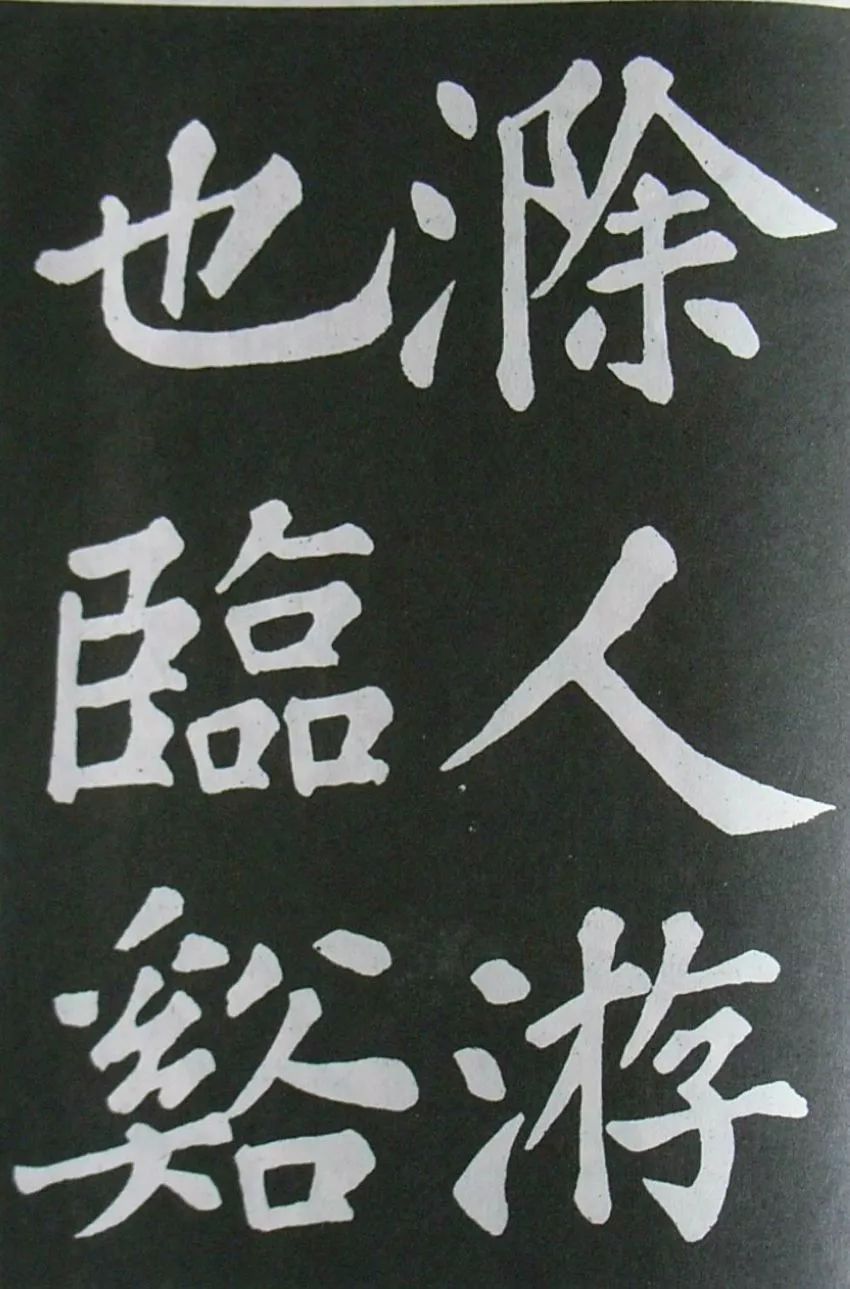 滁人游
也臨谿